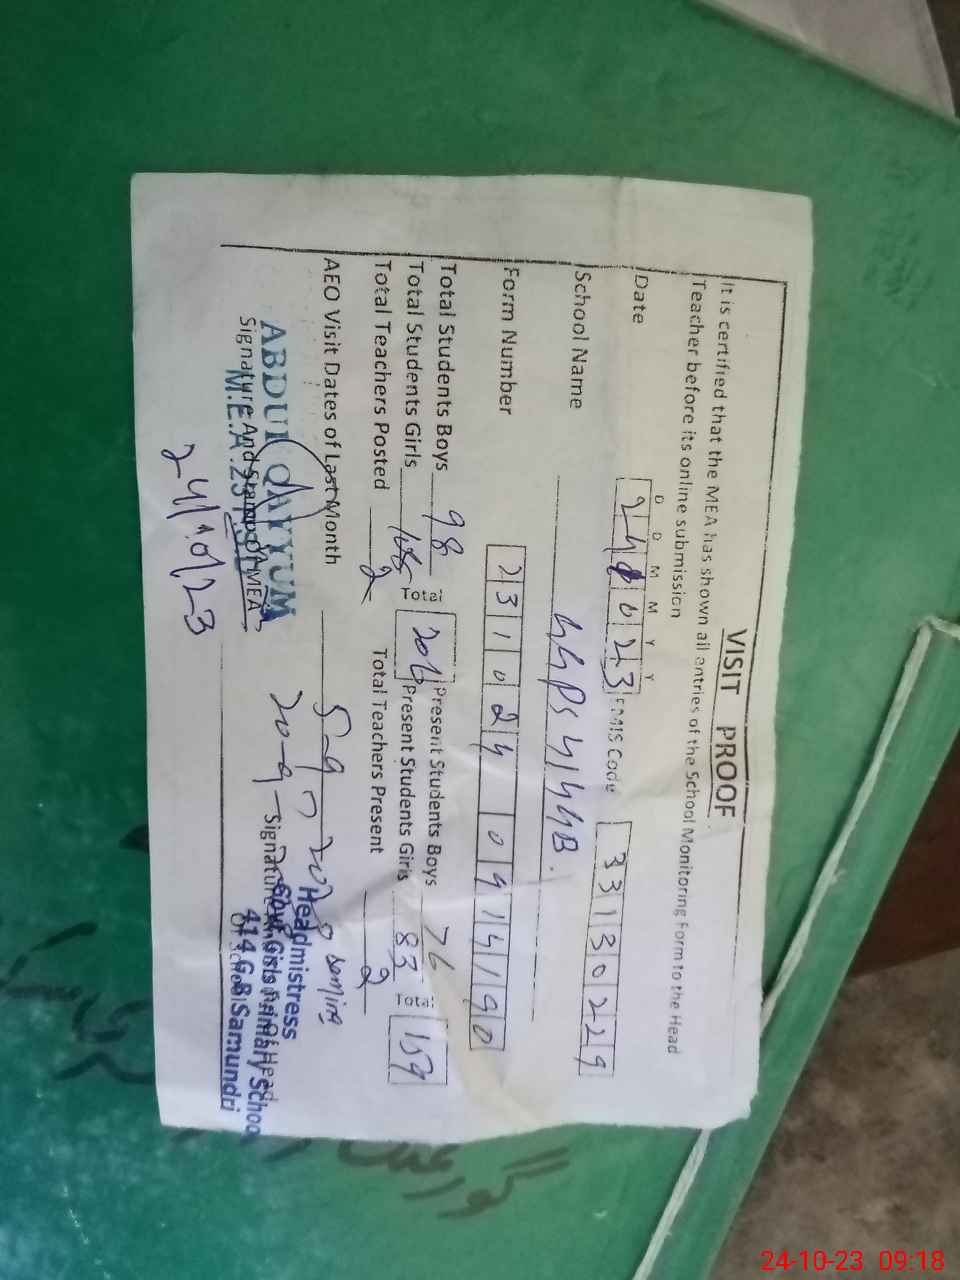 VISIT PROOF
It is certified that the MEA has shown all entries of the School Monitoring Form to the Head
Teacher before its online submission
D D M M Y Y
Date 241023 EMIS Code 33130229
School Name GGPS 414 GB.
Form Number 231024 0914190
Total Students Boys 98 Present Students Boys 76
Total Students Girls Total 206 Present Students Girls 83 Total 159
Total Teachers Posted 2 Total Teachers Present 2
AEO Visit Dates of Last Month 5-9
20-9
ABDUL QAYYUM
Signature And Stamp of MEA
M.E.A.
24/10/23
Headmistress
Govt. Girls Primary School
414 G.B Samundri
24-10-23 09:18